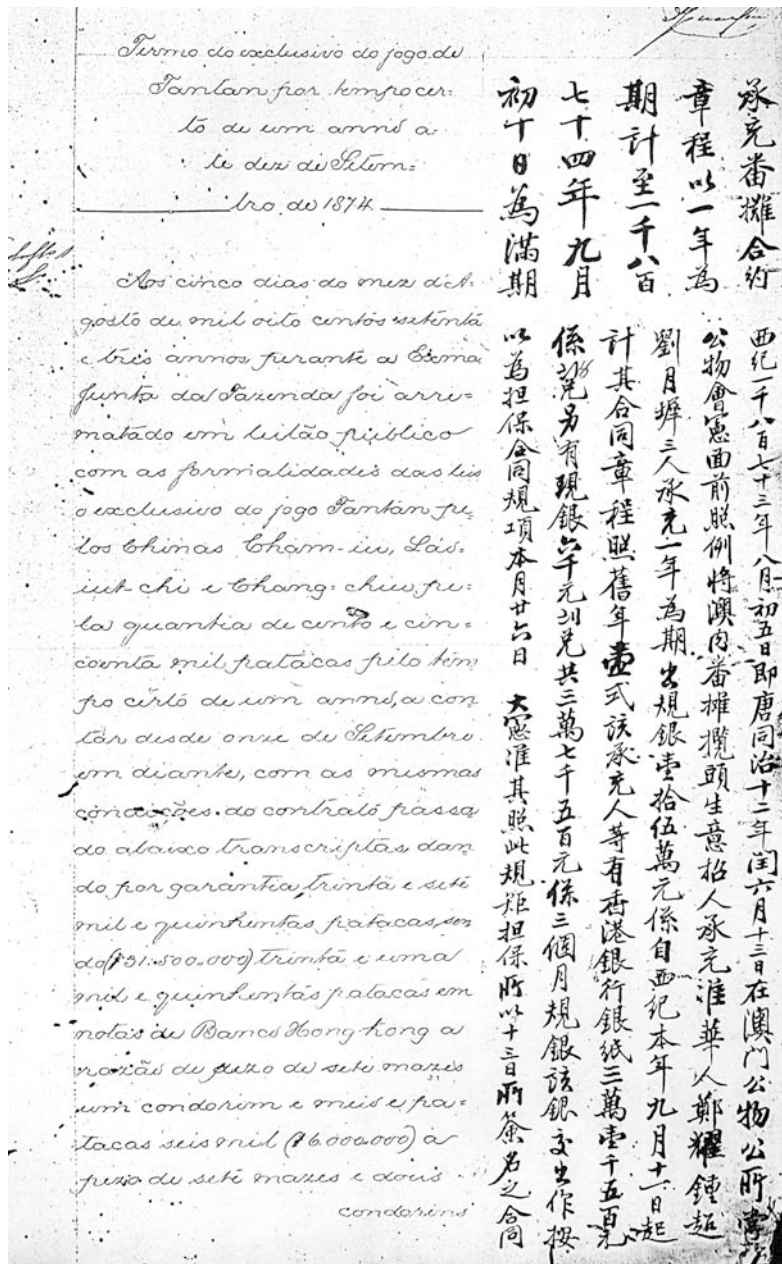 Termo do exclusivo do jogo de
Tantan por tempo cer=
to de um anno a=
te dez de Setem=
bro de 1874
Aos cinco dias do mez d'A=
gosto de mil oito centos setenta
e tres annos perante a Exma
Junta da Fazenda foi arre=
matado em leitão publico
com as formalidades das leis
o exclusivo do jogo Tantan pe=
los Chinas Cham-iu, Láo=
iut-chi e Chang-chiu, pe=
la quantia de cento e cin=
coenta mil patacas pelo tem
po certo de um anno, a con
tar desde onze de Setembro
em diante, com as mesmas
condições do contrato passa
do abaixo transcriptas dan
do por garantia trinta e sete
mil e quinhentas patacas, sen
do (\$31:500,000) trinta e uma
mil e quinhentas patacas em
notas do Banco Hong-kong a
razão de pezo de sete mazes
um condorim e meio e pa=
tacas seis mil (\$6.000,000) a
pezo de sete mazes e dois
condorins
承充番攤合約
章程以一年為
期計至一千八百
七十四年九月
初十日為滿期
西紀一千八百七十三年八月初五日即唐同治十二年閏六月十三日在澳門公物公所當
公物會憲面前照例將澳內番攤攬頭生意招人承充准華人鄭耀鍾超
劉月墀三人承充一年為期出規銀壹拾伍萬元係自西紀本年九月十一日起
計其合同章程照舊年壹式該承充人等有香港銀行銀紙三萬壹千五百元
係兌另有現銀六千元兌共三萬七千五百元係三個月規銀該銀交出作按
以為担保合同規項本月廿六日 大憲准其照此規矩担保所以十三日所簽名之合同